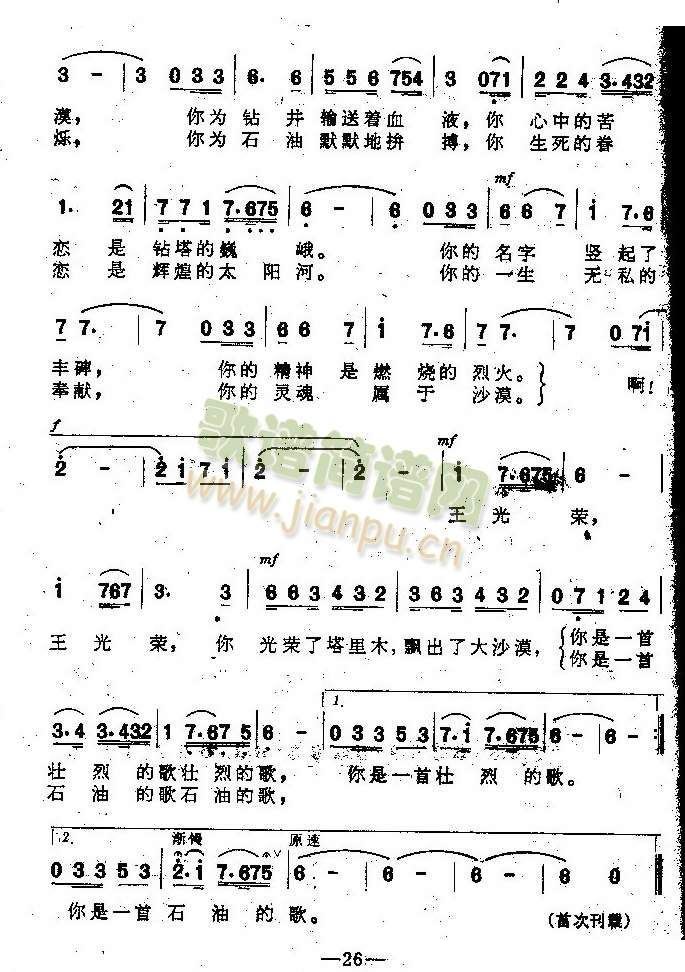 3 - | 3 033 | 6. 6 | 556 754 | 3 071 | 224 3.432
漠， 你为 钻 井 输送着血 液，你 心中的苦
烁， 你为 石 油 默默地拚 搏，你 生死的眷
mf
1. 21 | 771 7.675 | 6 - | 6 033 | 66 7 | i 7.6
恋 是 钻塔的巍 峨。 你的 名字 竖 起了
恋 是 辉煌的太 阳河。 你的 一生 无 私的
7 7. | 7 033 | 66 7 | i 7.6 | 7 7. | 7 07i
丰碑， 你的 精神 是 燃 烧的 烈火。 啊！
奉献， 你的 灵魂 属 于 沙漠。
f mf
2 - | 2i7i | 2 - | 2 - | i 7.675 | 6 -
王 光 荣，
mf
i 767 | 3. 3 | 663432 | 363432 | 071 24
王 光 荣， 你 光荣了塔里木，飘出了大沙漠， 你是一首
你是一首
1.
3.4 3.432 | 1 7.67 5 | 6 - | 033 53 | 7.i 7.675 | 6 - :||
壮 烈 的歌壮 烈的歌， 你是一首壮 烈 的歌。
石 油 的歌石 油的歌，
2. 渐慢 原速
033 53 | 2.i 7.675 | 6 - | 6 - | 6 - | 6 0 ||
你是一首 石 油 的歌。 (首次刊载)
—26—
歌谱简谱网
www.jianpu.cn